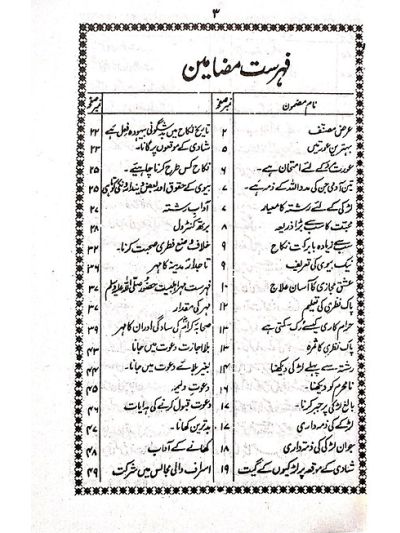 ۳
فہرست مضامین
نام مضمون نمبر صفحہ
عرضِ مصنف ۲
بہترین عورتیں ۵
عورت مرد کے لئے امتحان ہے۔ ۶
تین آدمی جن کی مدد اللہ کے ذمہ ہے۔ ۷
لڑکی کے لئے رشتہ کا معیار ۷
محبت کا سب سے بڑا ذریعہ ۸
سب سے زیادہ بابرکت نکاح ۹
نیک بیوی کی تعریف ۹
عشق مجازی کا آسان علاج ۱۰
پاک نظری کی تعلیم ۱۲
حرام کاری کیسے رُک سکتی ہے ۱۳
پاک نظری کا ثمرہ ۱۳
رشتہ سے پہلے لڑکی دیکھنا ۱۴
نامحرم کو دیکھنا۔ ۱۶
بالغ لڑکی پر جبر کرنا۔ ۱۷
لڑکے کی ذمہ داری ۱۷
جوان لڑکی کی ذمہ داری ۱۸
شادی کے موقعہ پر لڑکیوں کے گیت ۱۹
نمبر صفحہ
تاریخ نکاح میں بدشگونی بیہودہ فعل ہے ۲۲
شادی کے موقعوں پر گانا۔ ۲۳
نکاح کس طرح کرنا چاہیئے۔ ۲۵
بیوی کے حقوق اور بعض دینداروں کی کوتاہی ۲۵
آدابِ رشتہ ۲۷
برتھ کنٹرول ۲۸
خلافِ وضع فطری صحبت کرنا۔ ۳۲
تاجدارِ مدینہ کا مہر ۳۶
فہرست مہر اہلبیت حضور صلی اللہ علیہ وسلم ۳۷
مہر کی مقدار ۳۷
صحابہ کرامؓ کی سادگی اور ان کا مہر ۳۹
بلا اجازت دعوت میں جانا ۴۳
بغیر بلائے دعوت میں جانا۔ ۴۴
دعوتِ ولیمہ ۴۵
دعوت قبول کرنے کی ہدایات ۴۶
بدترین کھانا۔ ۴۷
کھانے کے آداب ۴۸
اسراف والی مجالس میں شرکت ۴۹